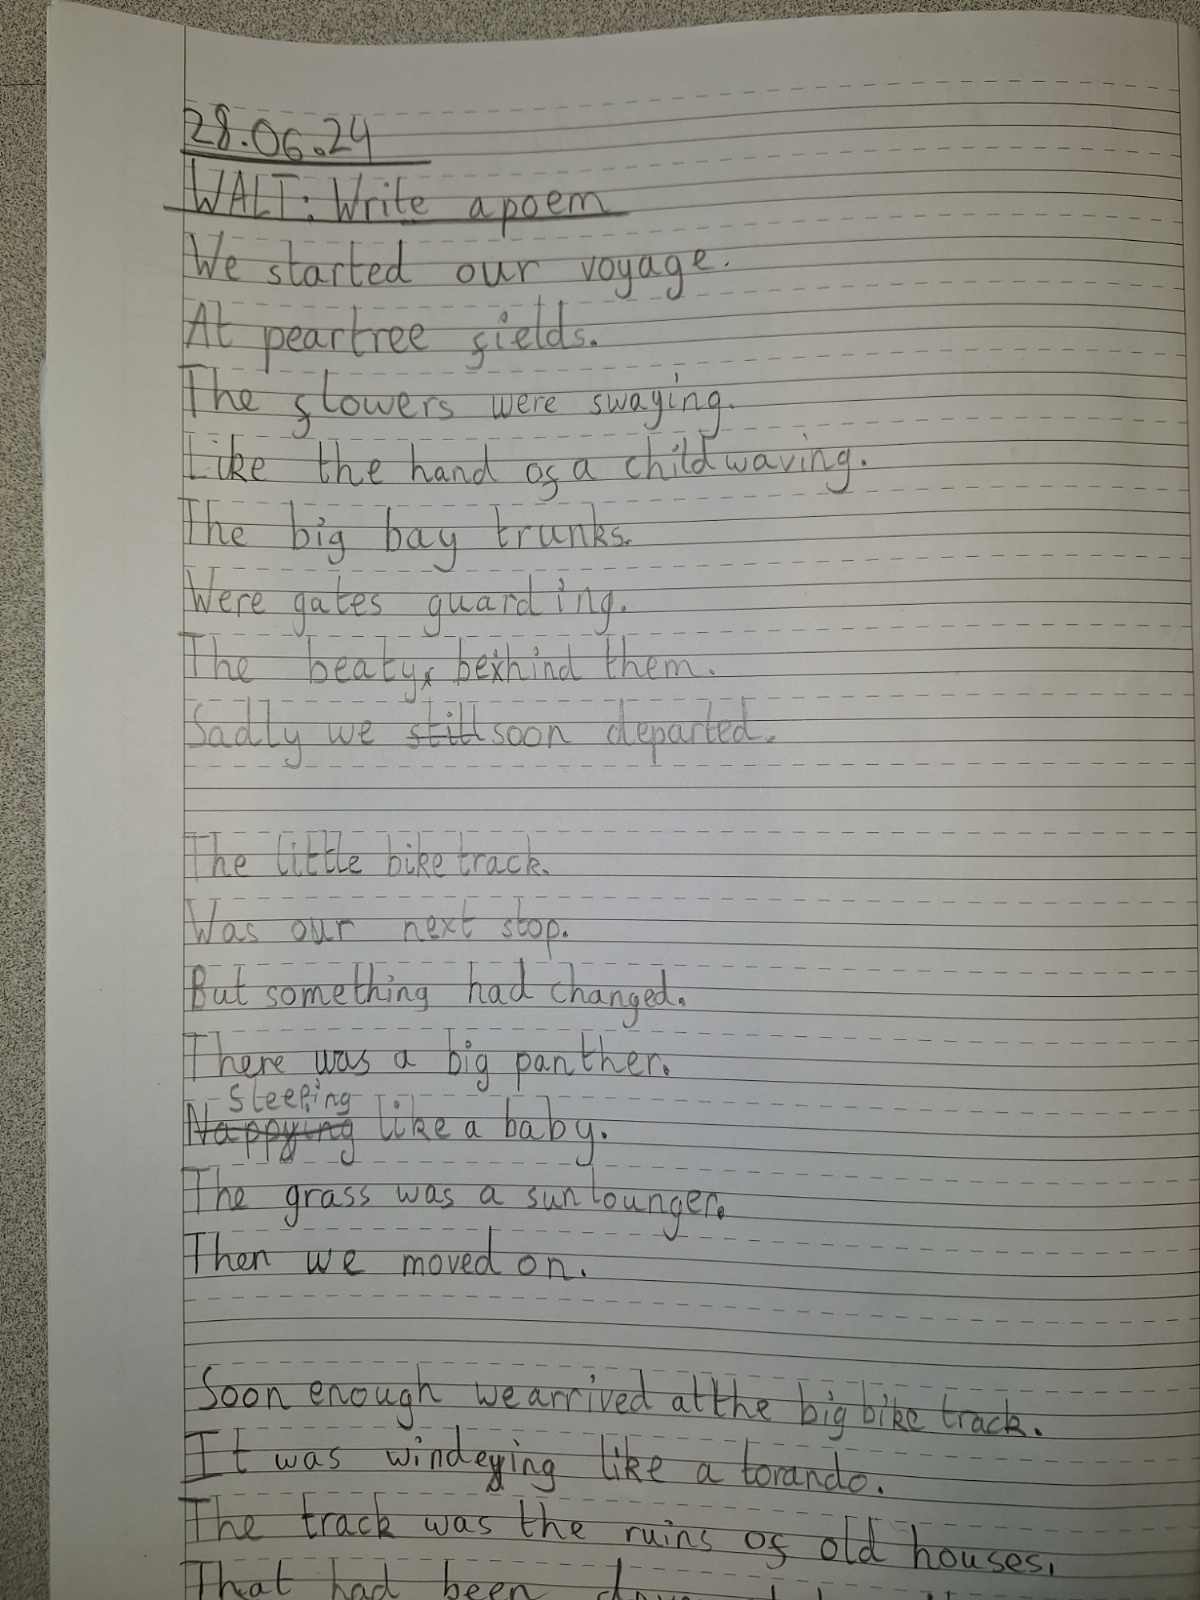 28.06.24
WALT: Write a poem
We started our voyage.
At peartree fields.
The flowers were swaying.
Like the hand of a child waving.
The big bay trunks.
Were gates guarding.
The beaty behind them.
Sadly we still soon departed.
The little bike track.
Was our next stop.
But something had changed.
There was a big panther.
Sleeping
Nappying like a baby.
The grass was a sun lounger.
Then we moved on.
Soon enough we arrived at the big bike track.
It was windeying like a torando.
The track was the ruins of old houses,
That had been